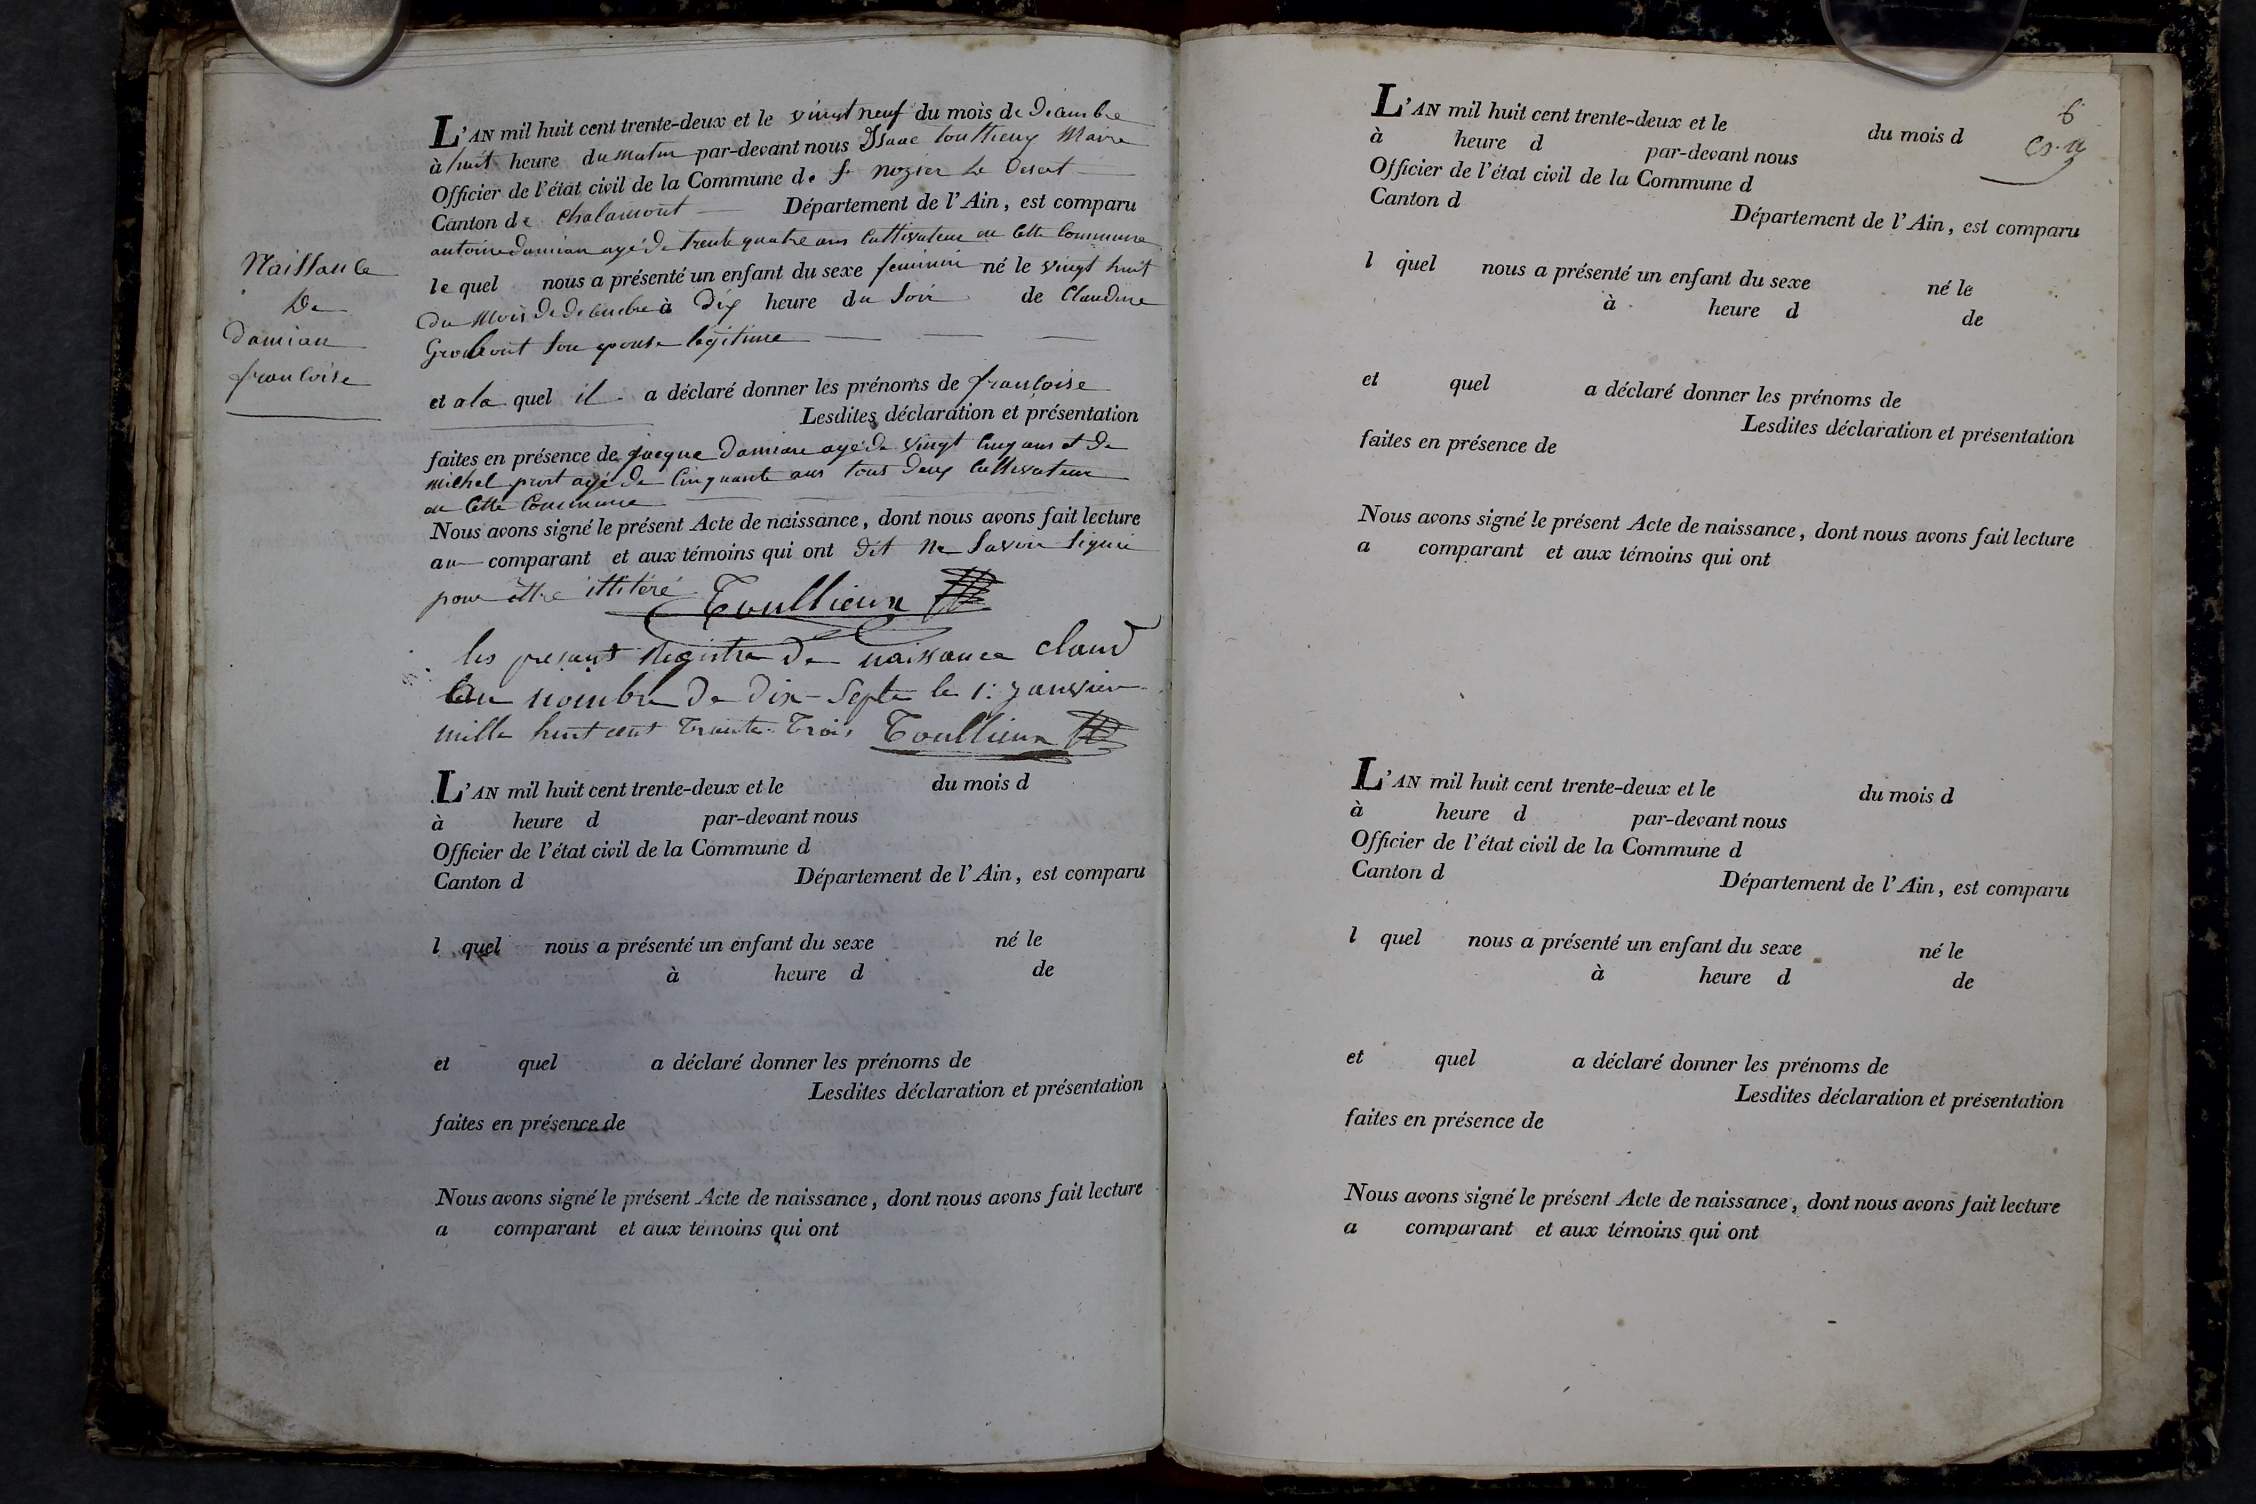 Naissance
De
damian
francoise
L'AN mil huit cent trente-deux et le vingt neuf du mois de Décembre
à huit heure du matin par-devant nous Isaac Toullieux Maire
Officier de l'état civil de la Commune de St nizier le Desert
Canton de Chalamont Département de l'Ain, est comparu
antoine damian agé de trente quatre ans Cultivateur en Cette Commune
le quel nous a présenté un enfant du sexe feminin né le vingt huit
du Mois de decembre à Dix heure du Soir de Claudine
Son epouse legitime
et a la quel il a déclaré donner les prénoms de francoise
Lesdites déclaration et présentation
faites en présence de jacque Damian agé de vingt cinq ans et de
michel agé de Cinquante ans tous deux Cultivateur
en Cette Commune
Nous avons signé le présent Acte de naissance, dont nous avons fait lecture
au comparant et aux témoins qui ont dit ne Savoir Signé
pour être illitéré
Toullieux
les presant Registre de naissance claud
au nombre de dix-Septe le 1: Janvier
mille huit cent Trante-Trois Toullieux
L'AN mil huit cent trente-deux et le du mois d
à heure d par-devant nous
Officier de l'état civil de la Commune d
Canton d Département de l'Ain, est comparu
l quel nous a présenté un enfant du sexe né le
à heure d de
et quel a déclaré donner les prénoms de
Lesdites déclaration et présentation
faites en présence de
Nous avons signé le présent Acte de naissance, dont nous avons fait lecture
a comparant et aux témoins qui ont
6
L'AN mil huit cent trente-deux et le du mois d
à heure d par-devant nous
Officier de l'état civil de la Commune d
Canton d Département de l'Ain, est comparu
l quel nous a présenté un enfant du sexe né le
à heure d de
et quel a déclaré donner les prénoms de
Lesdites déclaration et présentation
faites en présence de
Nous avons signé le présent Acte de naissance, dont nous avons fait lecture
a comparant et aux témoins qui ont
L'AN mil huit cent trente-deux et le du mois d
à heure d par-devant nous
Officier de l'état civil de la Commune d
Canton d Département de l'Ain, est comparu
l quel nous a présenté un enfant du sexe né le
à heure d de
et quel a déclaré donner les prénoms de
Lesdites déclaration et présentation
faites en présence de
Nous avons signé le présent Acte de naissance, dont nous avons fait lecture
a comparant et aux témoins qui ont